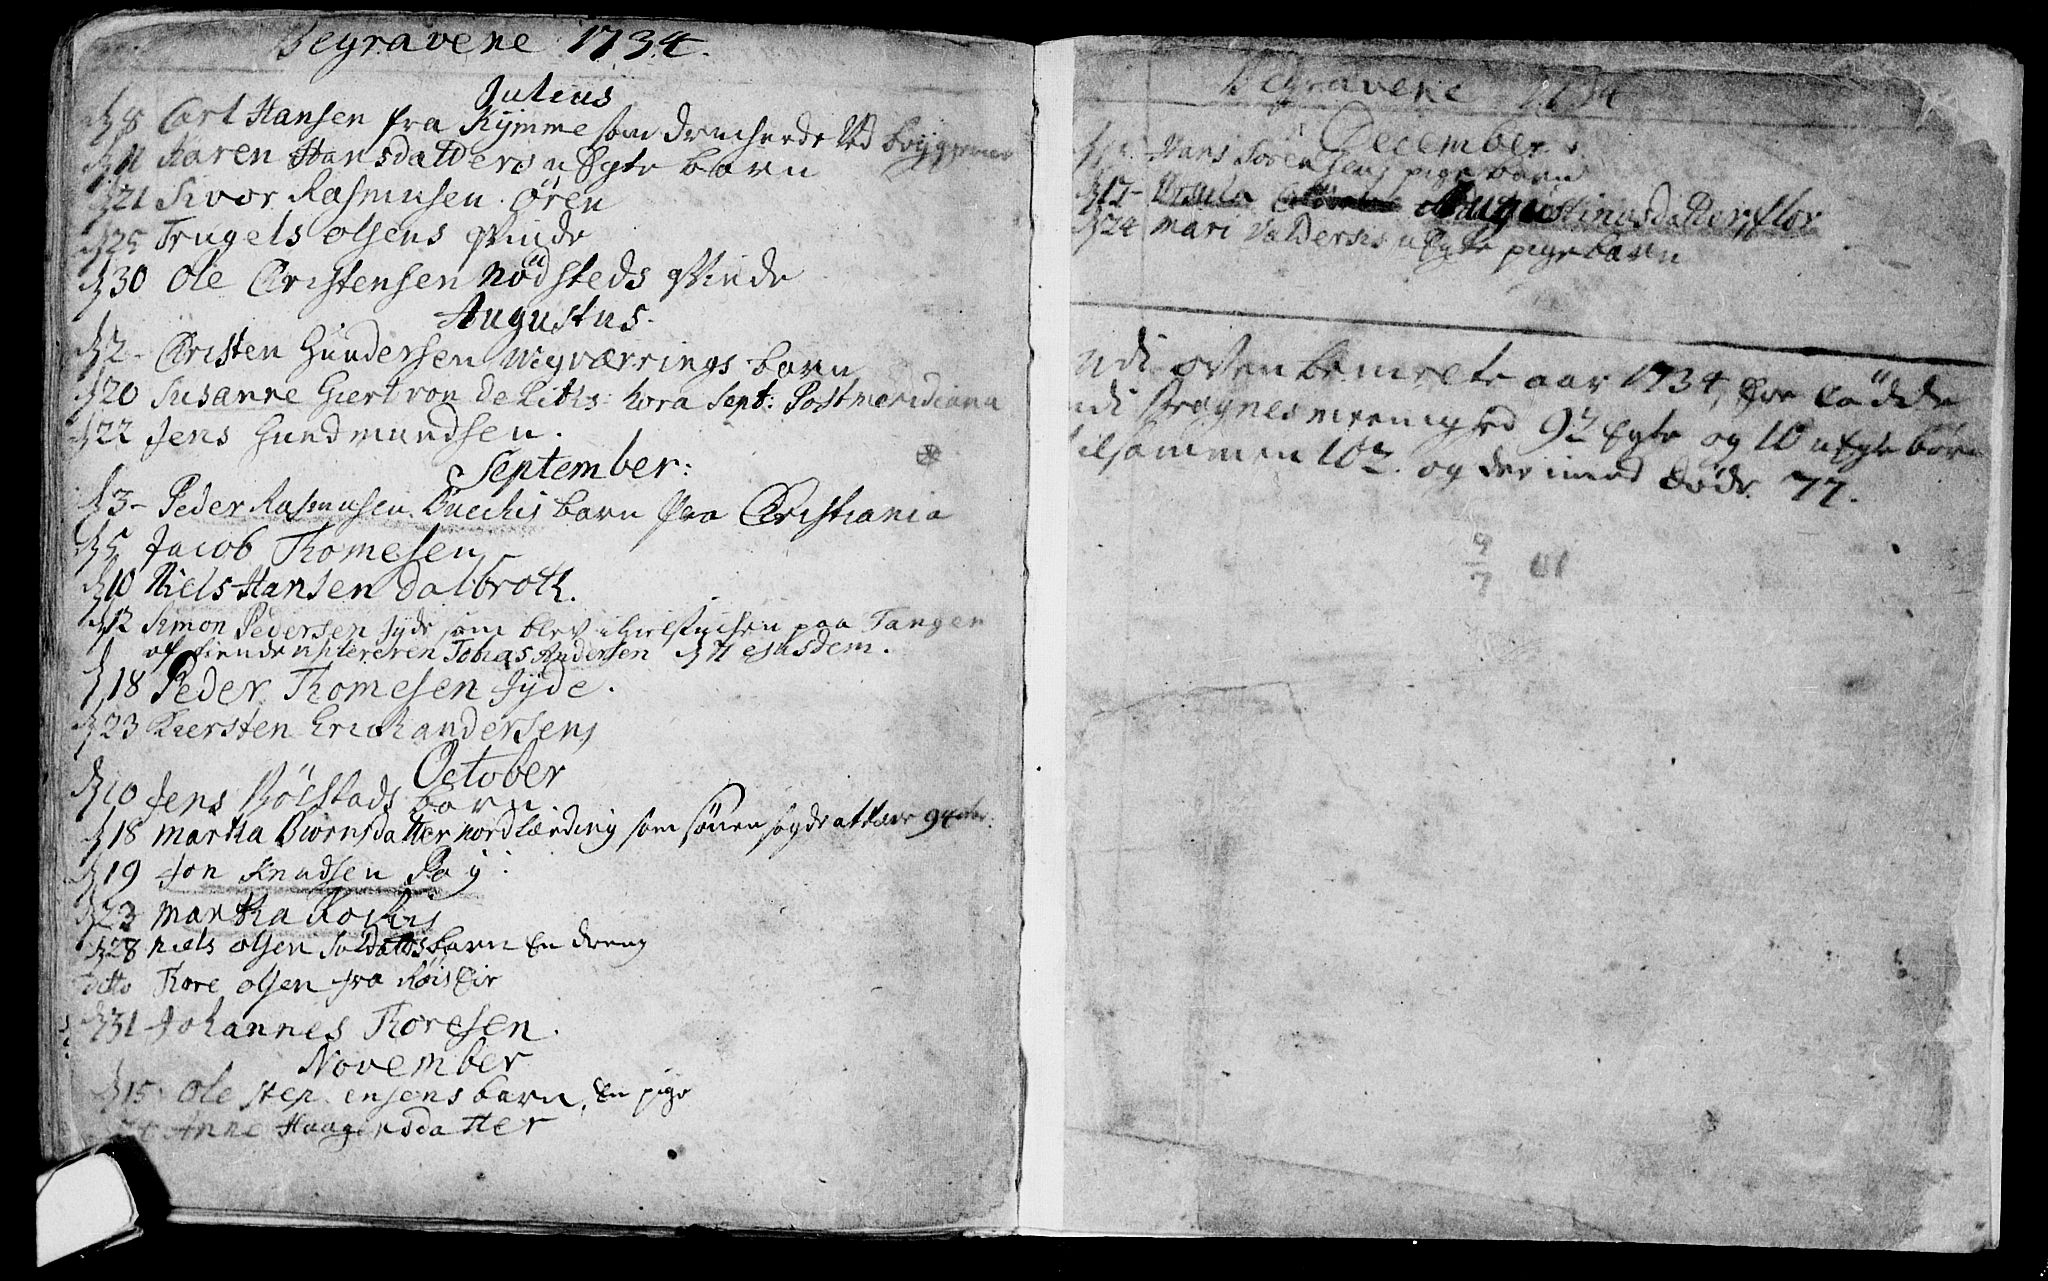 Begravene 1734.
Julius
d 8 Carl Hansen fra Rymme som druchnede ved bryggerne
d 11 Karen Hansdatters uEgte barn
d 21 Sivor Rasmusen Ören
d 25 Trugels olsens qVinde
d 30 Ole Christensen Nödsteds qVinde
Augustus
d 2 - Christen Gundersen barn
d 20 Susanne Giert von hora Sept: Postmeridiana
d 22 Jens Gundmundsen.
September:
d 3 - Peder Rasmusen barn fra Christiania
d 5 Jacob Thomesen
d 10 Niels Hansen Dalbroth.
d 12 Simon Pedersen Jyde som blev ihielstuchen paa Tangen
af Tobias Andersen d 11 ejusdem.
d 18 Peder Thomesen Jyde.
d 23 Kiersten Erich andersens
October
d 10 Jens Rölstads barn
d 18 Martha Biörnsdatter Nordlænding som sönen sagde at være 94 aar.
d 19 Jon Knudsen Roy:
d 23 Martha
d 28 Niels olsen Soldatts barn En dreng
ditto Thore olsen fra
d 31 Johannes Thoresen.
November
d 15 Ole Stephensens barn, En pige
Anne Haagensdatter
Begravene 1734
December
Hans Sörensens pigebarn
d 17 - Ursula Augustinusdatter flor
d 24 Mari Valdersis uEgte pigebarn
udi ovenbemelte aar 1734, Ere födde
udi Pragnes meenighed 92 Egte og 10 uEgte börn
tilsammen 102. og derimod döde 77.
9
7